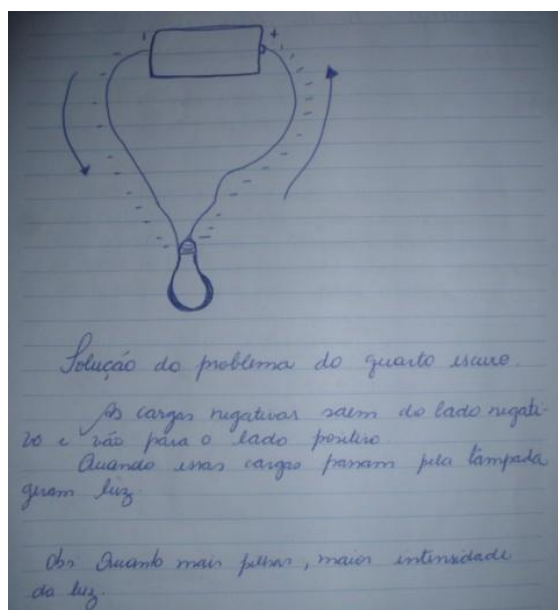 - +
Solução do problema do quarto escuro.
As cargas negativas saem do lado negati-
vo e vão para o lado positivo
Quando essas cargas passam pela lâmpada
geram luz.
Obs Quanto mais pilhas, maior intensidade
da luz.